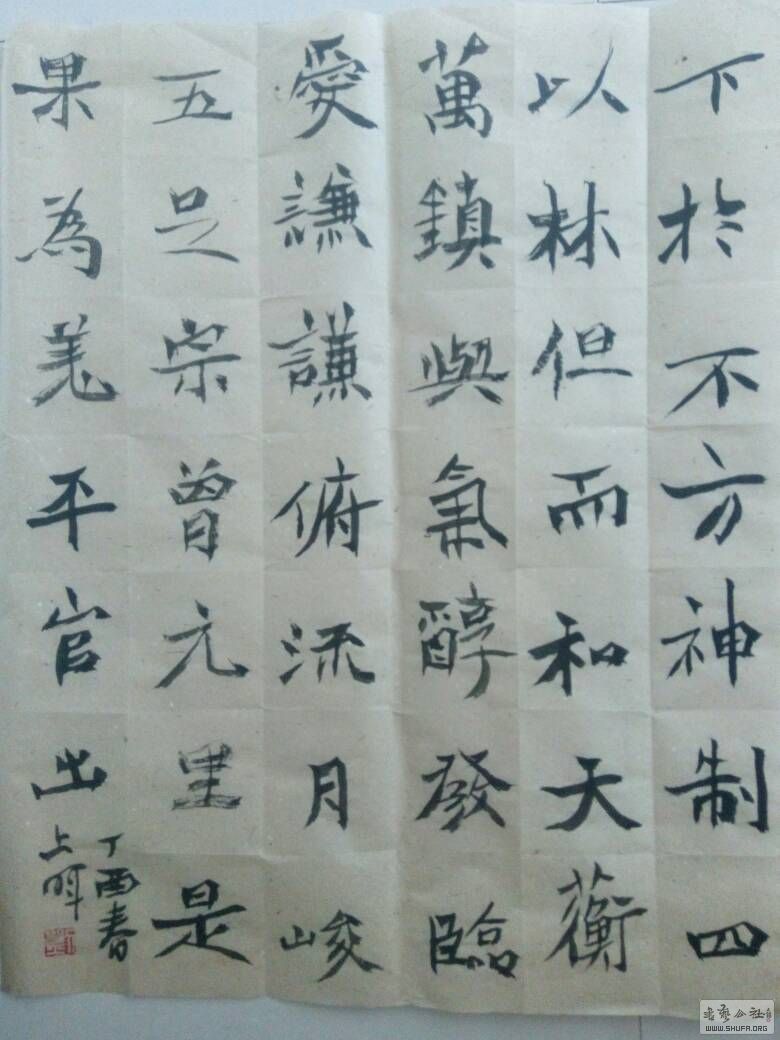 下於不方神制四
以林但而和天蘅
萬鎮嶼氣醇發臨
愛謙謙俯流月峻
五足宗曾元里是
果為羌平官出
丁酉春
上
书艺公社
WWW.SHUFA.ORG